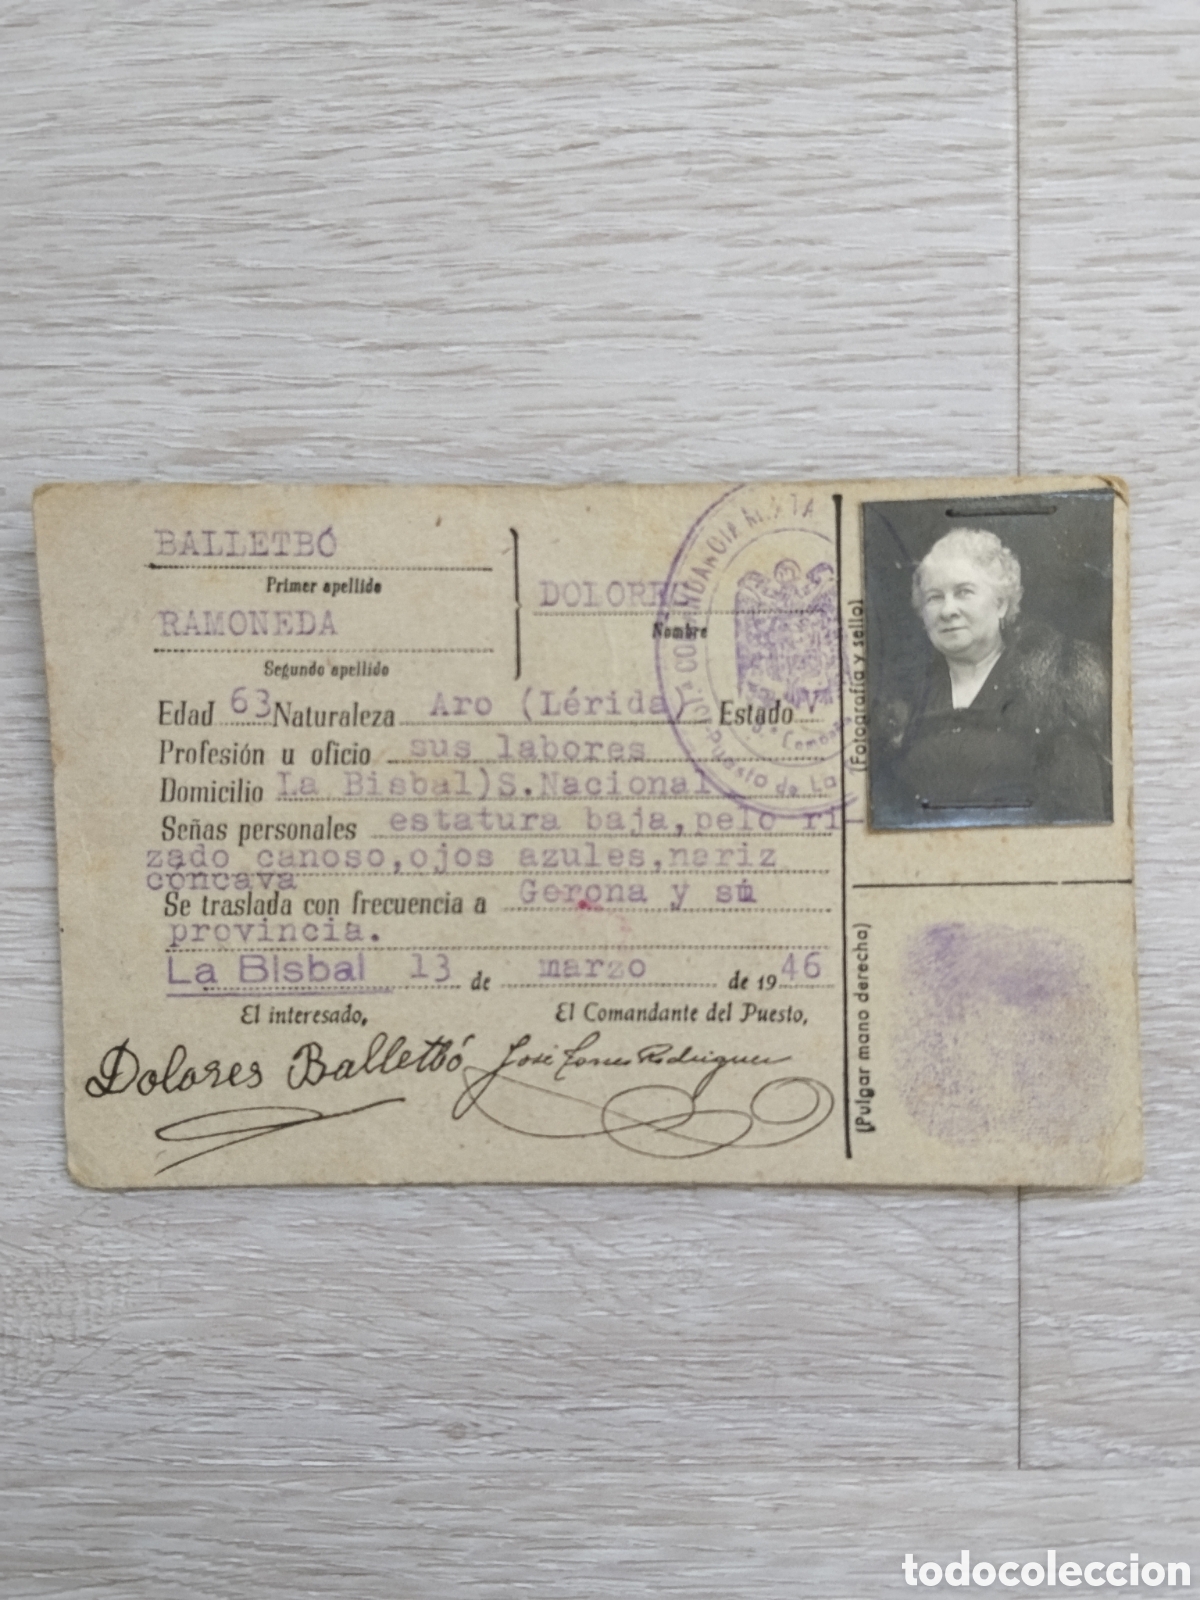 BALLETBÓ
Primer apellido
RAMONEDA
Segundo apellido
DOLORES
Nombre
Edad 63 Naturaleza Aro (Lérida) Estado V
Profesión u oficio sus labores
Domicilio La Bisbal)S.Nacional
Señas personales estatura baja, pelo ri-
zado canoso, ojos azules, nariz
cóncava
Se traslada con frecuencia a Gerona y su
provincia.
La Bisbal 13 de marzo de 1946
El interesado,
El Comandante del Puesto,
Dolores Balletbó
José Torres Rodriguez
(Fotografía y sello)
(Pulgar mano derecha)
Puesto de La
todocoleccion